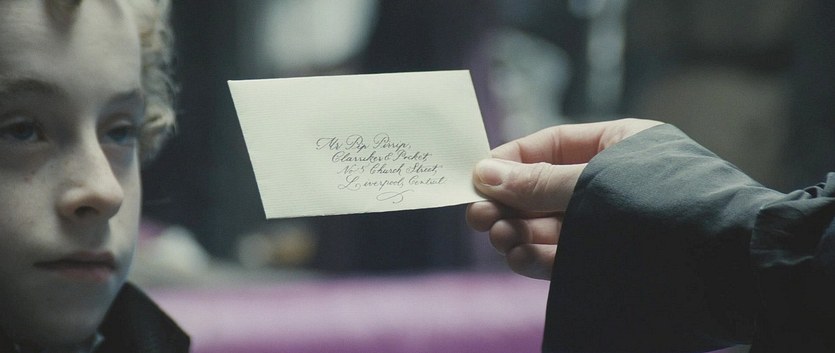 Mr Pip Pirrip,
Clarriker & Pocket,
No 5 Church Street,
Liverpool, Central